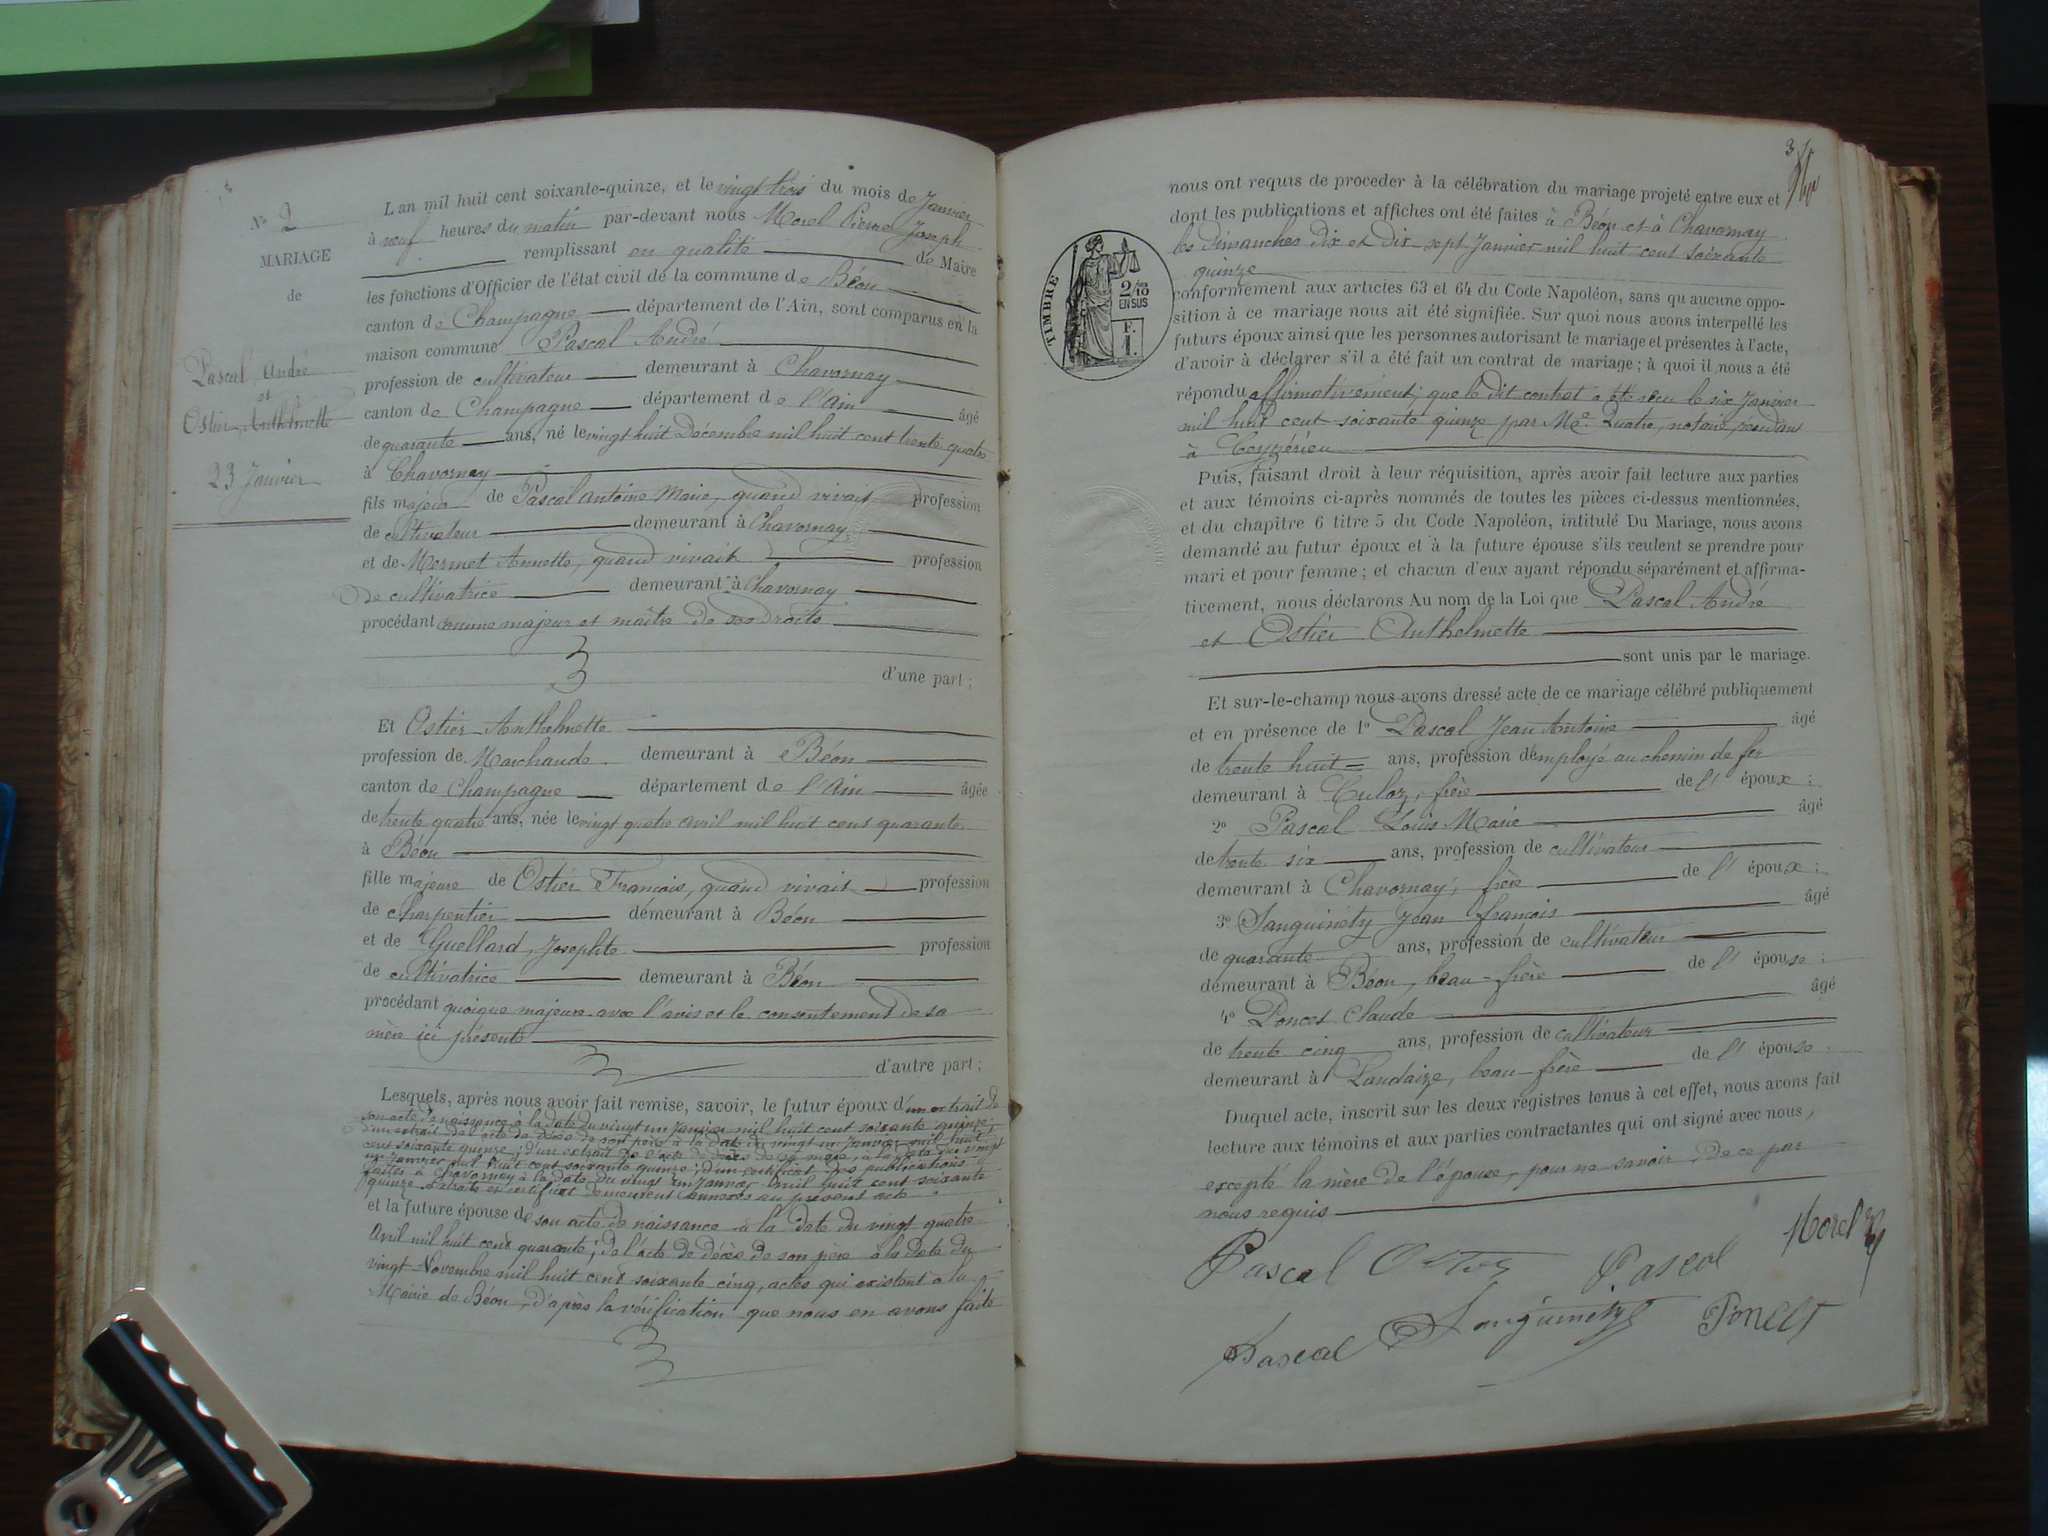 3
Nº 2
MARIAGE
de
Pascal André
et
Ostier Anthelmette
23 Janvier
L'an mil huit cent soixante-quinze, et le vingt trois du mois de Janvier
à neuf heures du matin par-devant nous Morel Pierre Joseph
remplissant en qualité de Maire
les fonctions d'Officier de l'état civil de la commune de Béon
canton de Champagne département de l'Ain, sont comparus en la
maison commune Pascal André
profession de cultivateur demeurant à Chavornay
canton de Champagne département de l'Ain âgé
de quarante ans, né le vingt huit Décembre mil huit cent trente quatre
à Chavornay
fils majeur de Pascal Antoine Marie, quand vivait profession
de cultivateur demeurant à Chavornay
et de Mermet Annette, quand vivait profession
de cultivatrice demeurant à Chavornay
procédant comme majeur et maître de ses droits
d'une part ;
Et Ostier Anthelmette
profession de Marchande demeurant à Béon
canton de Champagne département de l'Ain âgée
de trente quatre ans, née le vingt quatre avril mil huit cent quarante
à Béon
fille majeure de Ostier François, quand vivait profession
de charpentier demeurant à Béon
et de Guellard, Josephte profession
de cultivatrice demeurant à Béon
procédant quoique majeure avec l'avis et le consentement de sa
mère ici présente
d'autre part ;
Lesquels, après nous avoir fait remise, savoir, le futur époux d'un extrait de
son acte de naissance à la date du vingt un Janvier mil huit cent soixante quinze,
d'un extrait de l'acte de décès de son père à la date du vingt un Janvier mil huit
cent soixante quinze ; d'un extrait de l'acte de décès de sa mère, à la date du vingt
un Janvier mil huit cent soixante quinze ; d'un certificat des publications
faites à Chavornay à la date du vingt un Janvier mil huit cent soixante
quinze. Extraits et certificat demeurent annexés au présent acte
et la future épouse de son acte de naissance à la date du vingt quatre
Avril mil huit cent quarante ; de l'acte de décès de son père à la date du
vingt Novembre mil huit cent soixante cinq, actes qui existent à la
Mairie de Béon, d'après la vérification que nous en avons faite
3
nous ont requis de proceder à la célébration du mariage projeté entre eux et
dont les publications et affiches ont été faites à Béon et à Chavornay
les dimanches dix et dix-sept Janvier mil huit cent soixante
quinze
TIMBRE
2/10
EN SUS
F.
1.
conformement aux articles 63 et 64 du Code Napoléon, sans qu'aucune oppo-
sition à ce mariage nous ait été signifiée. Sur quoi nous avons interpellé les
futurs époux ainsi que les personnes autorisant le mariage et présentes à l'acte,
d'avoir à déclarer s'il a été fait un contrat de mariage ; à quoi il nous a été
répondu affirmativement, que le dit contrat a été reçu le six Janvier
mil huit cent soixante quinze par Me Quatre, notaire, résidant
à Ceyzérieu
Puis, faisant droit à leur réquisition, après avoir fait lecture aux parties
et aux témoins ci-après nommés de toutes les pièces ci-dessus mentionnées,
et du chapitre 6 titre 5 du Code Napoléon, intitulé Du Mariage, nous avons
demandé au futur époux et à la future épouse s'ils veulent se prendre pour
mari et pour femme ; et chacun d'eux ayant répondu séparément et affirma-
tivement, nous déclarons Au nom de la Loi que Pascal André
et Ostier Anthelmette
sont unis par le mariage.
Et sur-le-champ nous avons dressé acte de ce mariage célébré publiquement
et en présence de 1º Pascal Jean Antoine âgé
de trente huit ans, profession d'employé au chemin de fer
demeurant à Culoz, frère de l'époux ;
2º Pascal Louis Marie âgé
de trente six ans, profession de cultivateur
demeurant à Chavornay, frère de l'époux ;
3º Sanguinety Jean François âgé
de quarante ans, profession de cultivateur
demeurant à Béon, beau-frère de l'épouse ;
4º Poncet Claude âgé
de trente cinq ans, profession de cultivateur
demeurant à Landaize, beau-frère de l'épouse.
Duquel acte, inscrit sur les deux registres tenus à cet effet, nous avons fait
lecture aux témoins et aux parties contractantes qui ont signé avec nous,
excepté la mère de l'épouse, pour ne savoir, de ce par
nous requis
Pascal Ostier Pascal Morel
Pascal Sanguinety Poncet